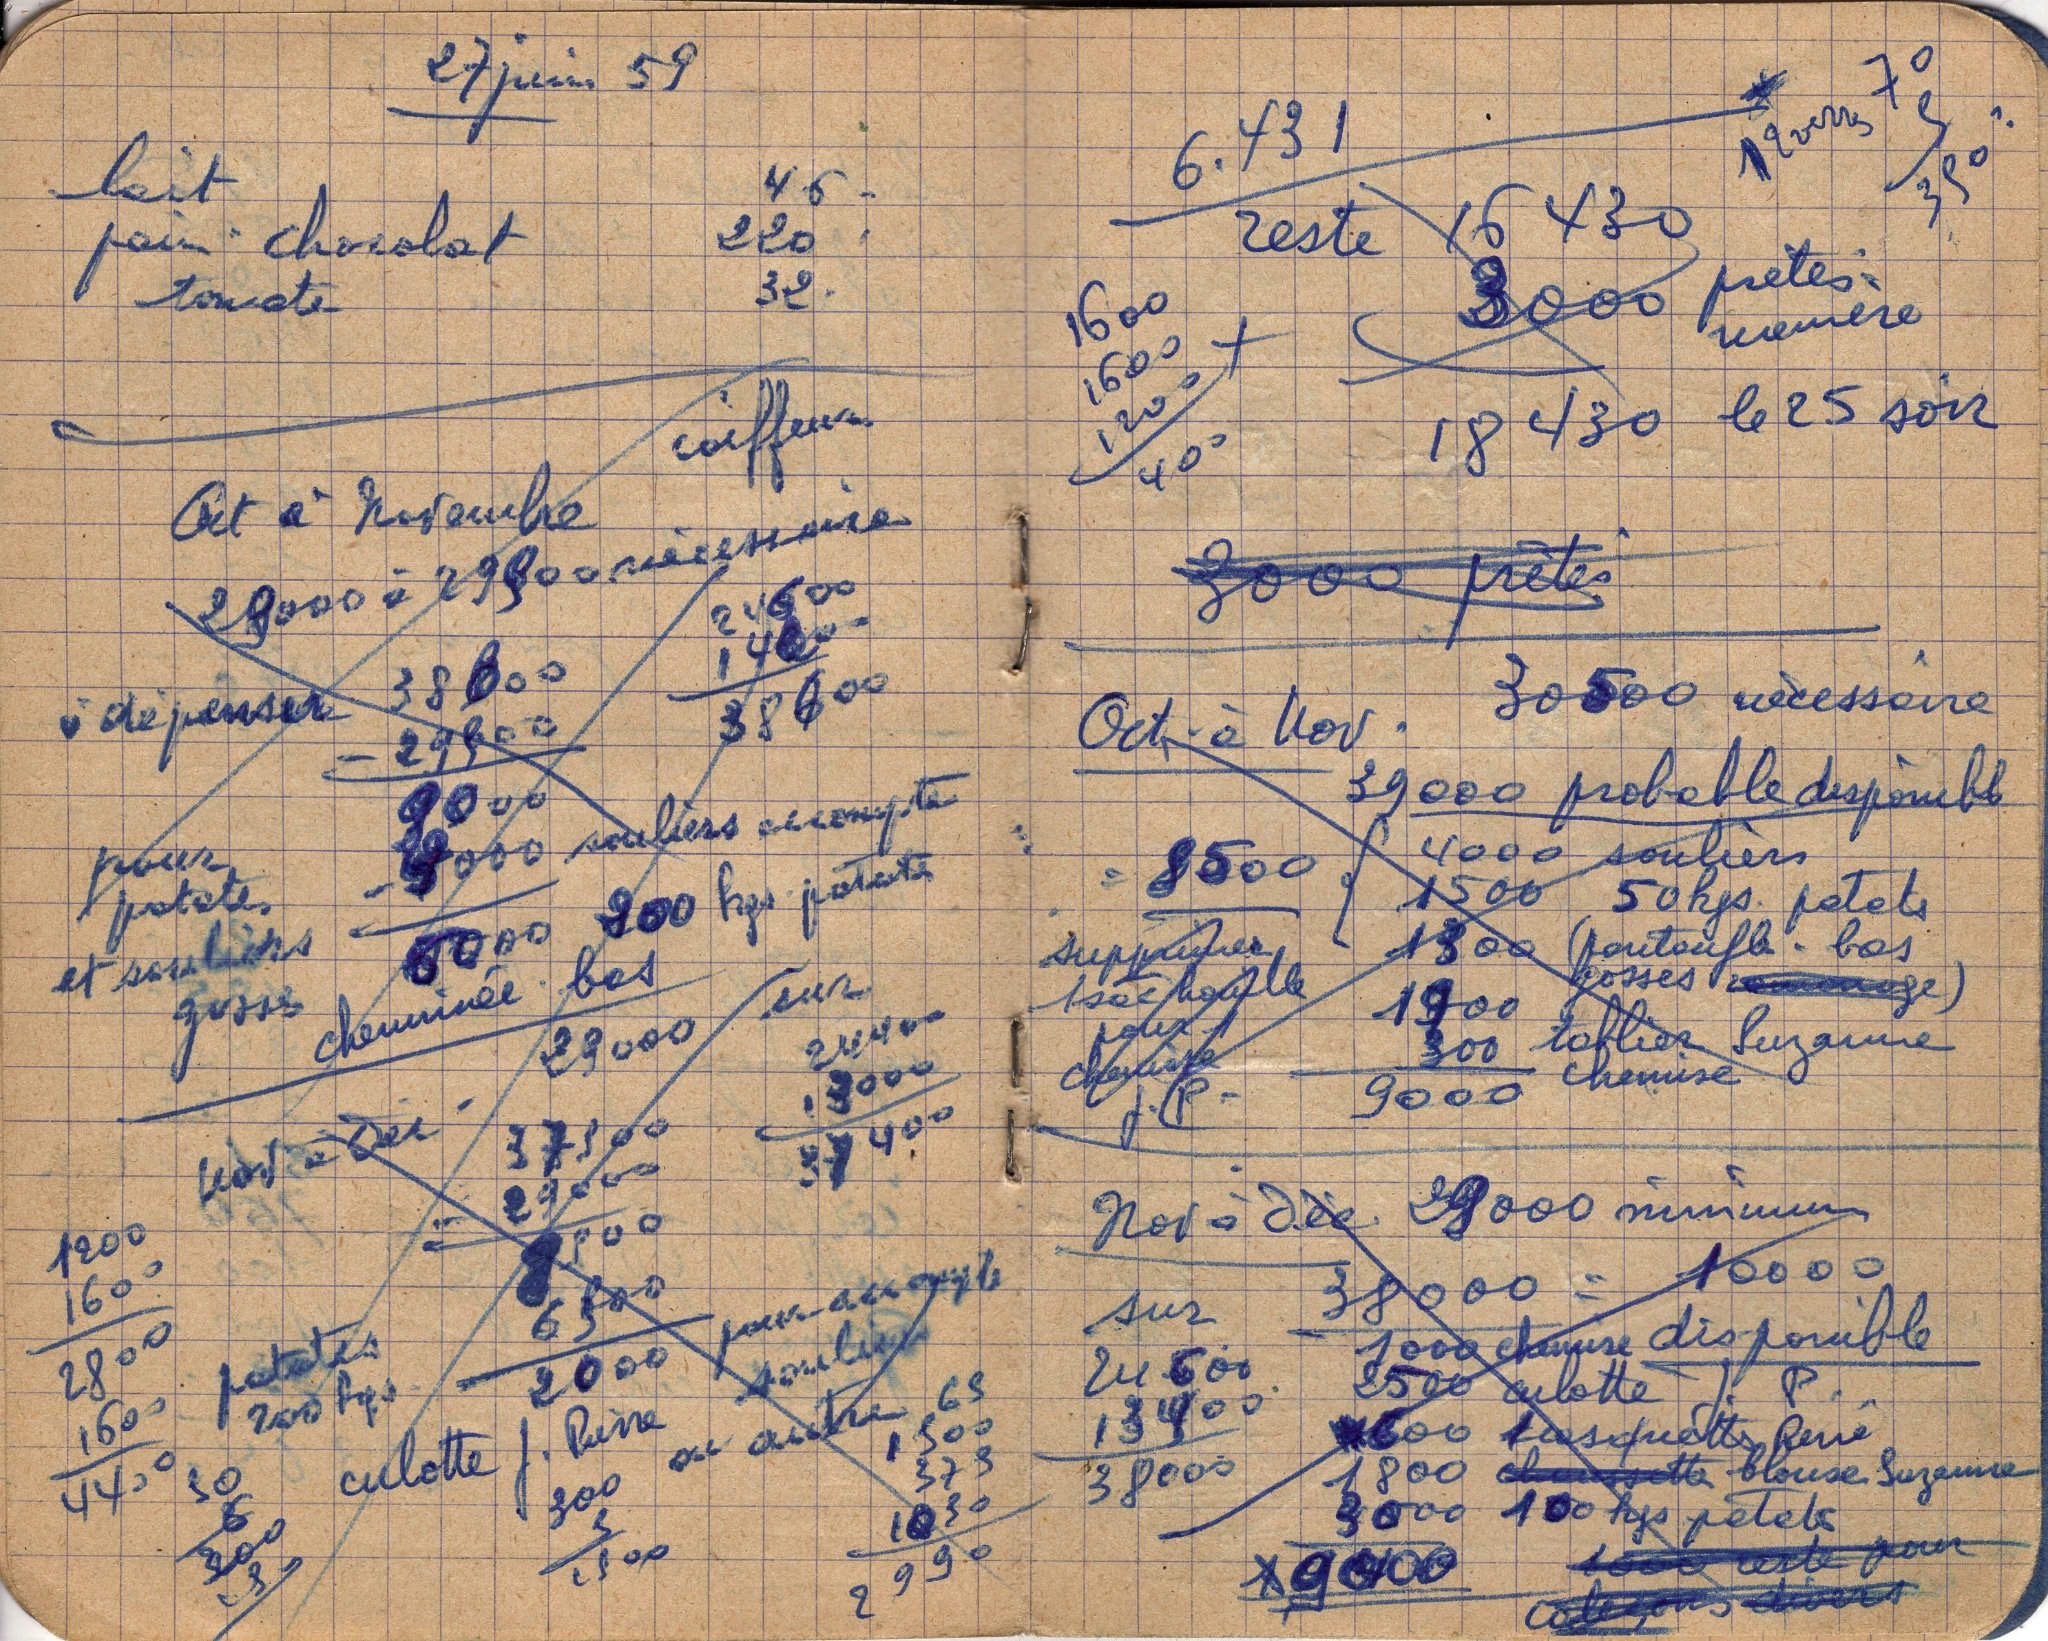 27 juin 59
lait 46 -
pain - chocolat 220
tomate 32.
coiffeur
Oct à Novembre
29000 à 29500 nécessaire
24600
14000
38600
à dépenser 38600
- 29600
9000
- 4000 souliers acompte
5000 200 kgs patates
pour
patates
et souliers
gosses
cheminée - bas
29000
sur
24400
13000
37400
Nov à Déc
37500
- 29000
8500
6500
2000
pour acompte
souliers
ou autre
1200
1600
2800
1600
4400
patates
200 kgs
culotte J. Pierre
50
6
300
300
5
1500
65
1500
375
1030
2990
6.431
12 verres 70
350
reste 16 430
3000 prêtés
mémère
18 430 le 25 soir
1600
1600 +
1200
400
3000 prêtés
Oct. à Nov. 30500 nécessaire
39000 probable disponible
= 8500
4000 souliers
1500 50 kgs. patates
1300 (pantoufle - bas
gosses)
1900
300 tablier Suzanne
9000 chemise
supprimer
1 sac houille
pour 1
chemise
J. P -
Nov à Déc. 29000 minimum
38000 = 10000
disponible
sur
24600
13400
38000
1000 chemise
2500 culotte J. P.
600 1 casquette Pierre
1800 blouse Suzanne
3000 100 kgs patates
1000 reste pour
caleçons divers